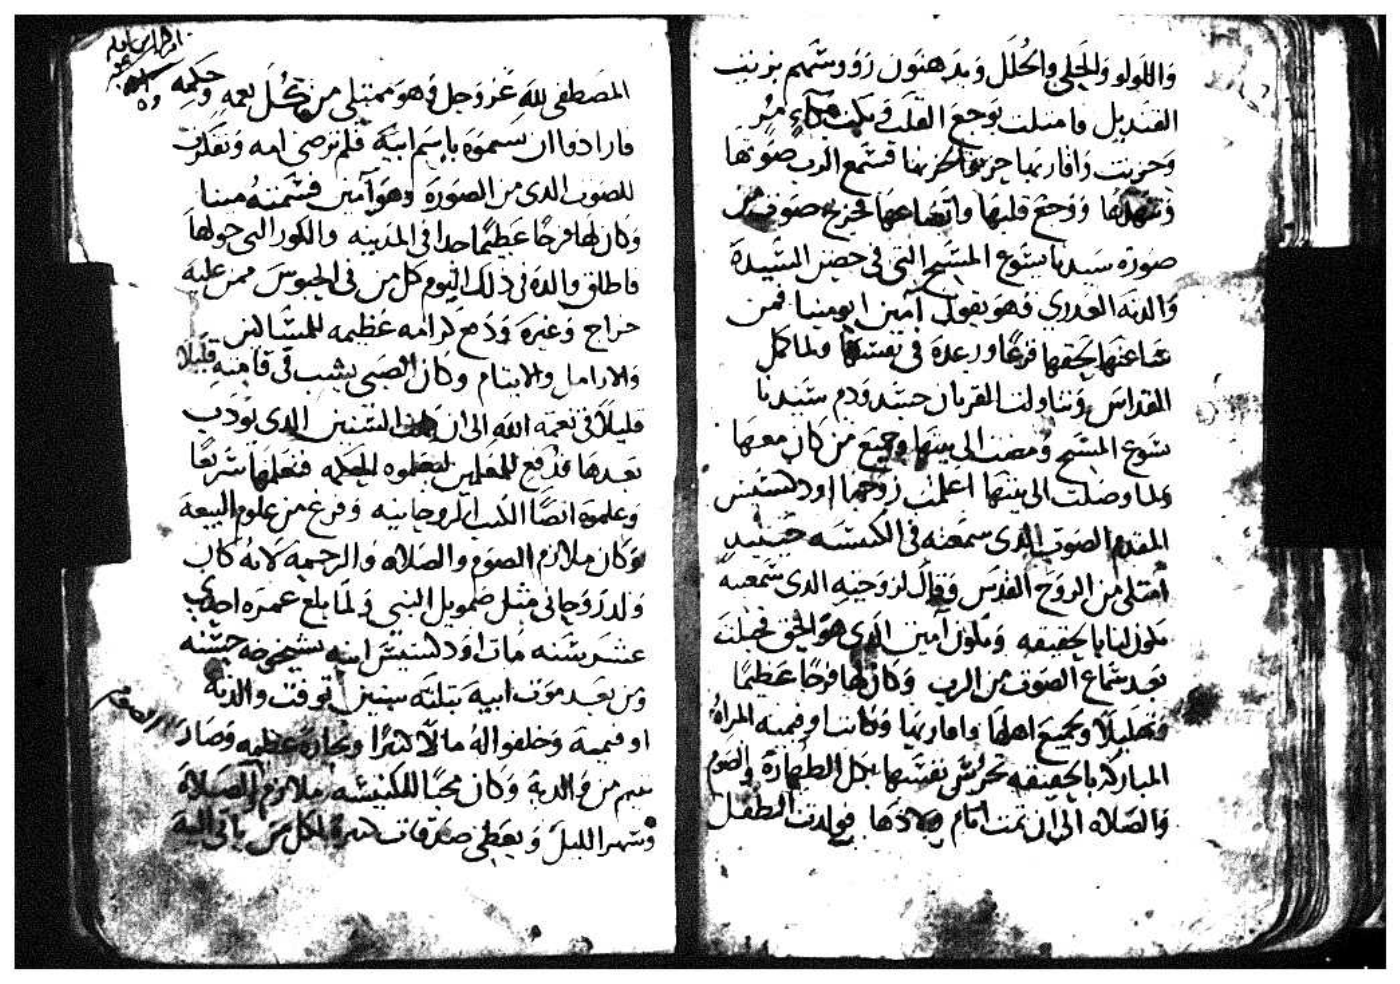 واللولو والحلي والحلل ويدهنون رووسهم بزيت
القنديل فامتلت بوجع القلب وبكت بكاء مر
وحزنت واقاربها حزنوا لحزنها فسمع الرب صوتها
وتنهدها ووجع قلبها واتضاعها فخرج صوت من
صورة سيدنا يسوع المسيح التي في حضن السيدة
والدته العدري وهو يقول آمين ابو مينا فمن
سماعها لحقها فزعا ورعدة في نفسها ولما كمل
القداس وتناولت القربان جسد ودم سيدنا
يسوع المسيح ومضت الي بيتها وجميع من كان معها
ولما وصلت الى بيتها اعلمت زوجها اودكسيس
المقدم الصوت الذى سمعته في الكنيسه حينيد
امتلى من الروح القدس وقال لزوجته الدى سمعتيه
يكون لنا بالحقيقه ويكون آمين الدى هو الحق فحبلت
بعد سماع الصوت من الرب وكان لها فرحا عظيما
وتهليلا وجميع اهلها واقاربها وكانت اوفيميه المراة
المباركه بالحقيقه تحرس نفسها بكل الطهارة والصوم
والصلاه الى ان تمت ايام ولادها فولدت الطفل
المصطفى لله عز وجل وهو ممتلي من كل نعمه وحكمه
فارادوا ان يسموه باسم ابيه فلم ترضى امه وتفكرت
للصوت الدى من الصورة وهو آمين فسمته مينا
وكان لها فرحا عظيما جدا في المدينه والكور التى حولها
فاطلق والده في ذلك اليوم كل من في الحبوس ممن عليه
خراج وغيره ودفع كرامه عظيمه للمساكين
والارامل والايتام وكان الصبى يشب في قامته قليلا
قليلا في نعمة الله الى ان السنين الدى يودب
بعدها فدفع للمعلمين ليعلموه الحكمه فتعلمها سريعا
وعلموه ايضا الكتب الروحانيه وفرغ من علوم البيعة
وكان ملازم الصوم والصلاه والرحمة لانه كان
ولد روحاني مثل صمويل النبي ولما بلغ عمره احدى
عشر سنه مات اودكسيس ابيه بشيخوخه حسنه
ومن بعد موت ابيه بتلته سنين توفت والدته
اوفيمية وخلفوا له مالا كثيرا وتجارة عظيمه وصار
يتيم من والدية وكان محبا للكنيسه ملازم الصلاة
وسهر الليل ويعطى صدقات كثيرة لكل من ياتي اليه